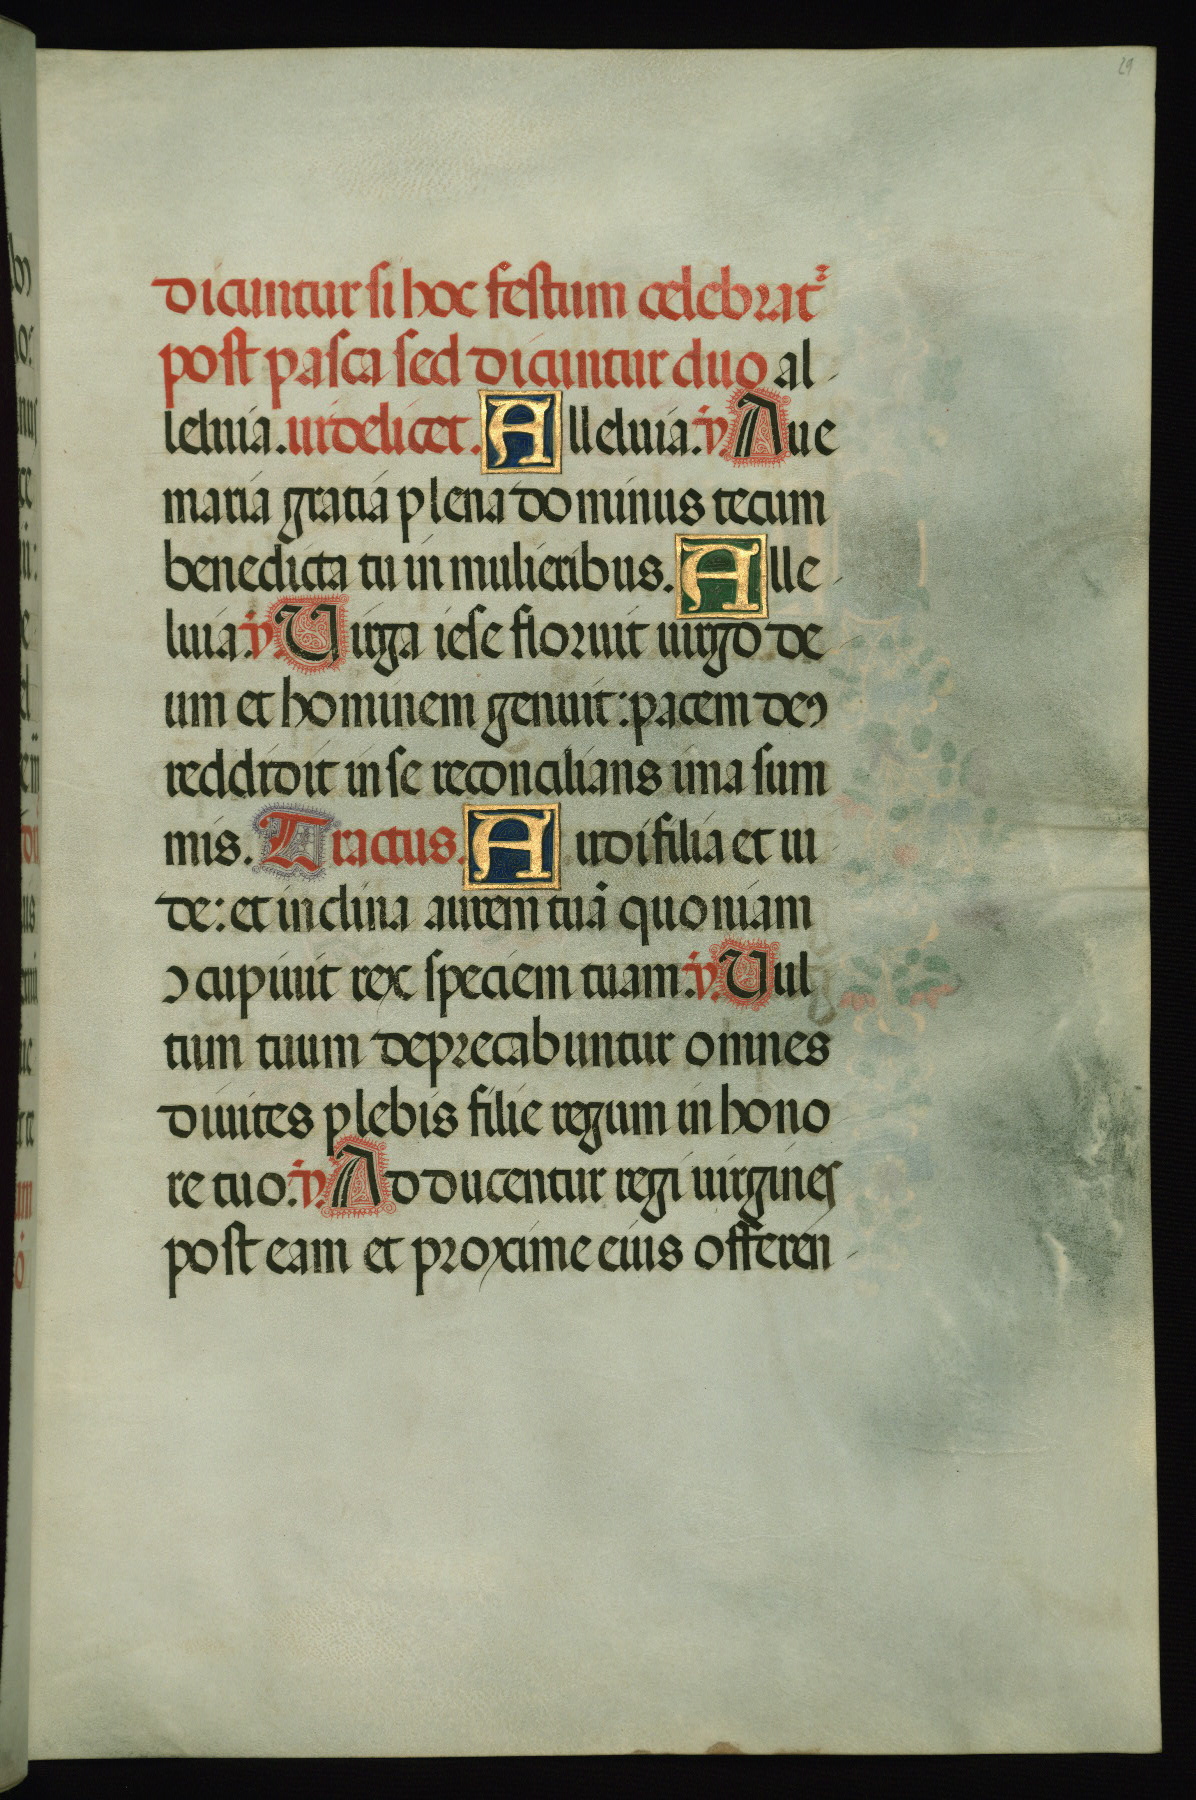 29
dicuntur si hoc festum celebrat᷑
post pasca sed dicuntur duo al
leluia. uidelicet. Alleluia. ℣. Aue
maria gratia plena dominus tecum
benedicta tu in mulieribus. Alle
luia. ℣. Uirga iese floruit uirgo de
um et hominem genuit: pacem deꝰ
reddidit in se reconcilians ima sum
mis. Tractus. Audi filia et ui
de: et inclina aurem tuā quoniam
ↄcupiuit rex speciem tuam. ℣. Uul
tum tuum deprecabuntur omnes
diuites plebis filie regum in hono
re tuo. ℣. Adducentur regi uirgines
post eam et proxime eius offeren